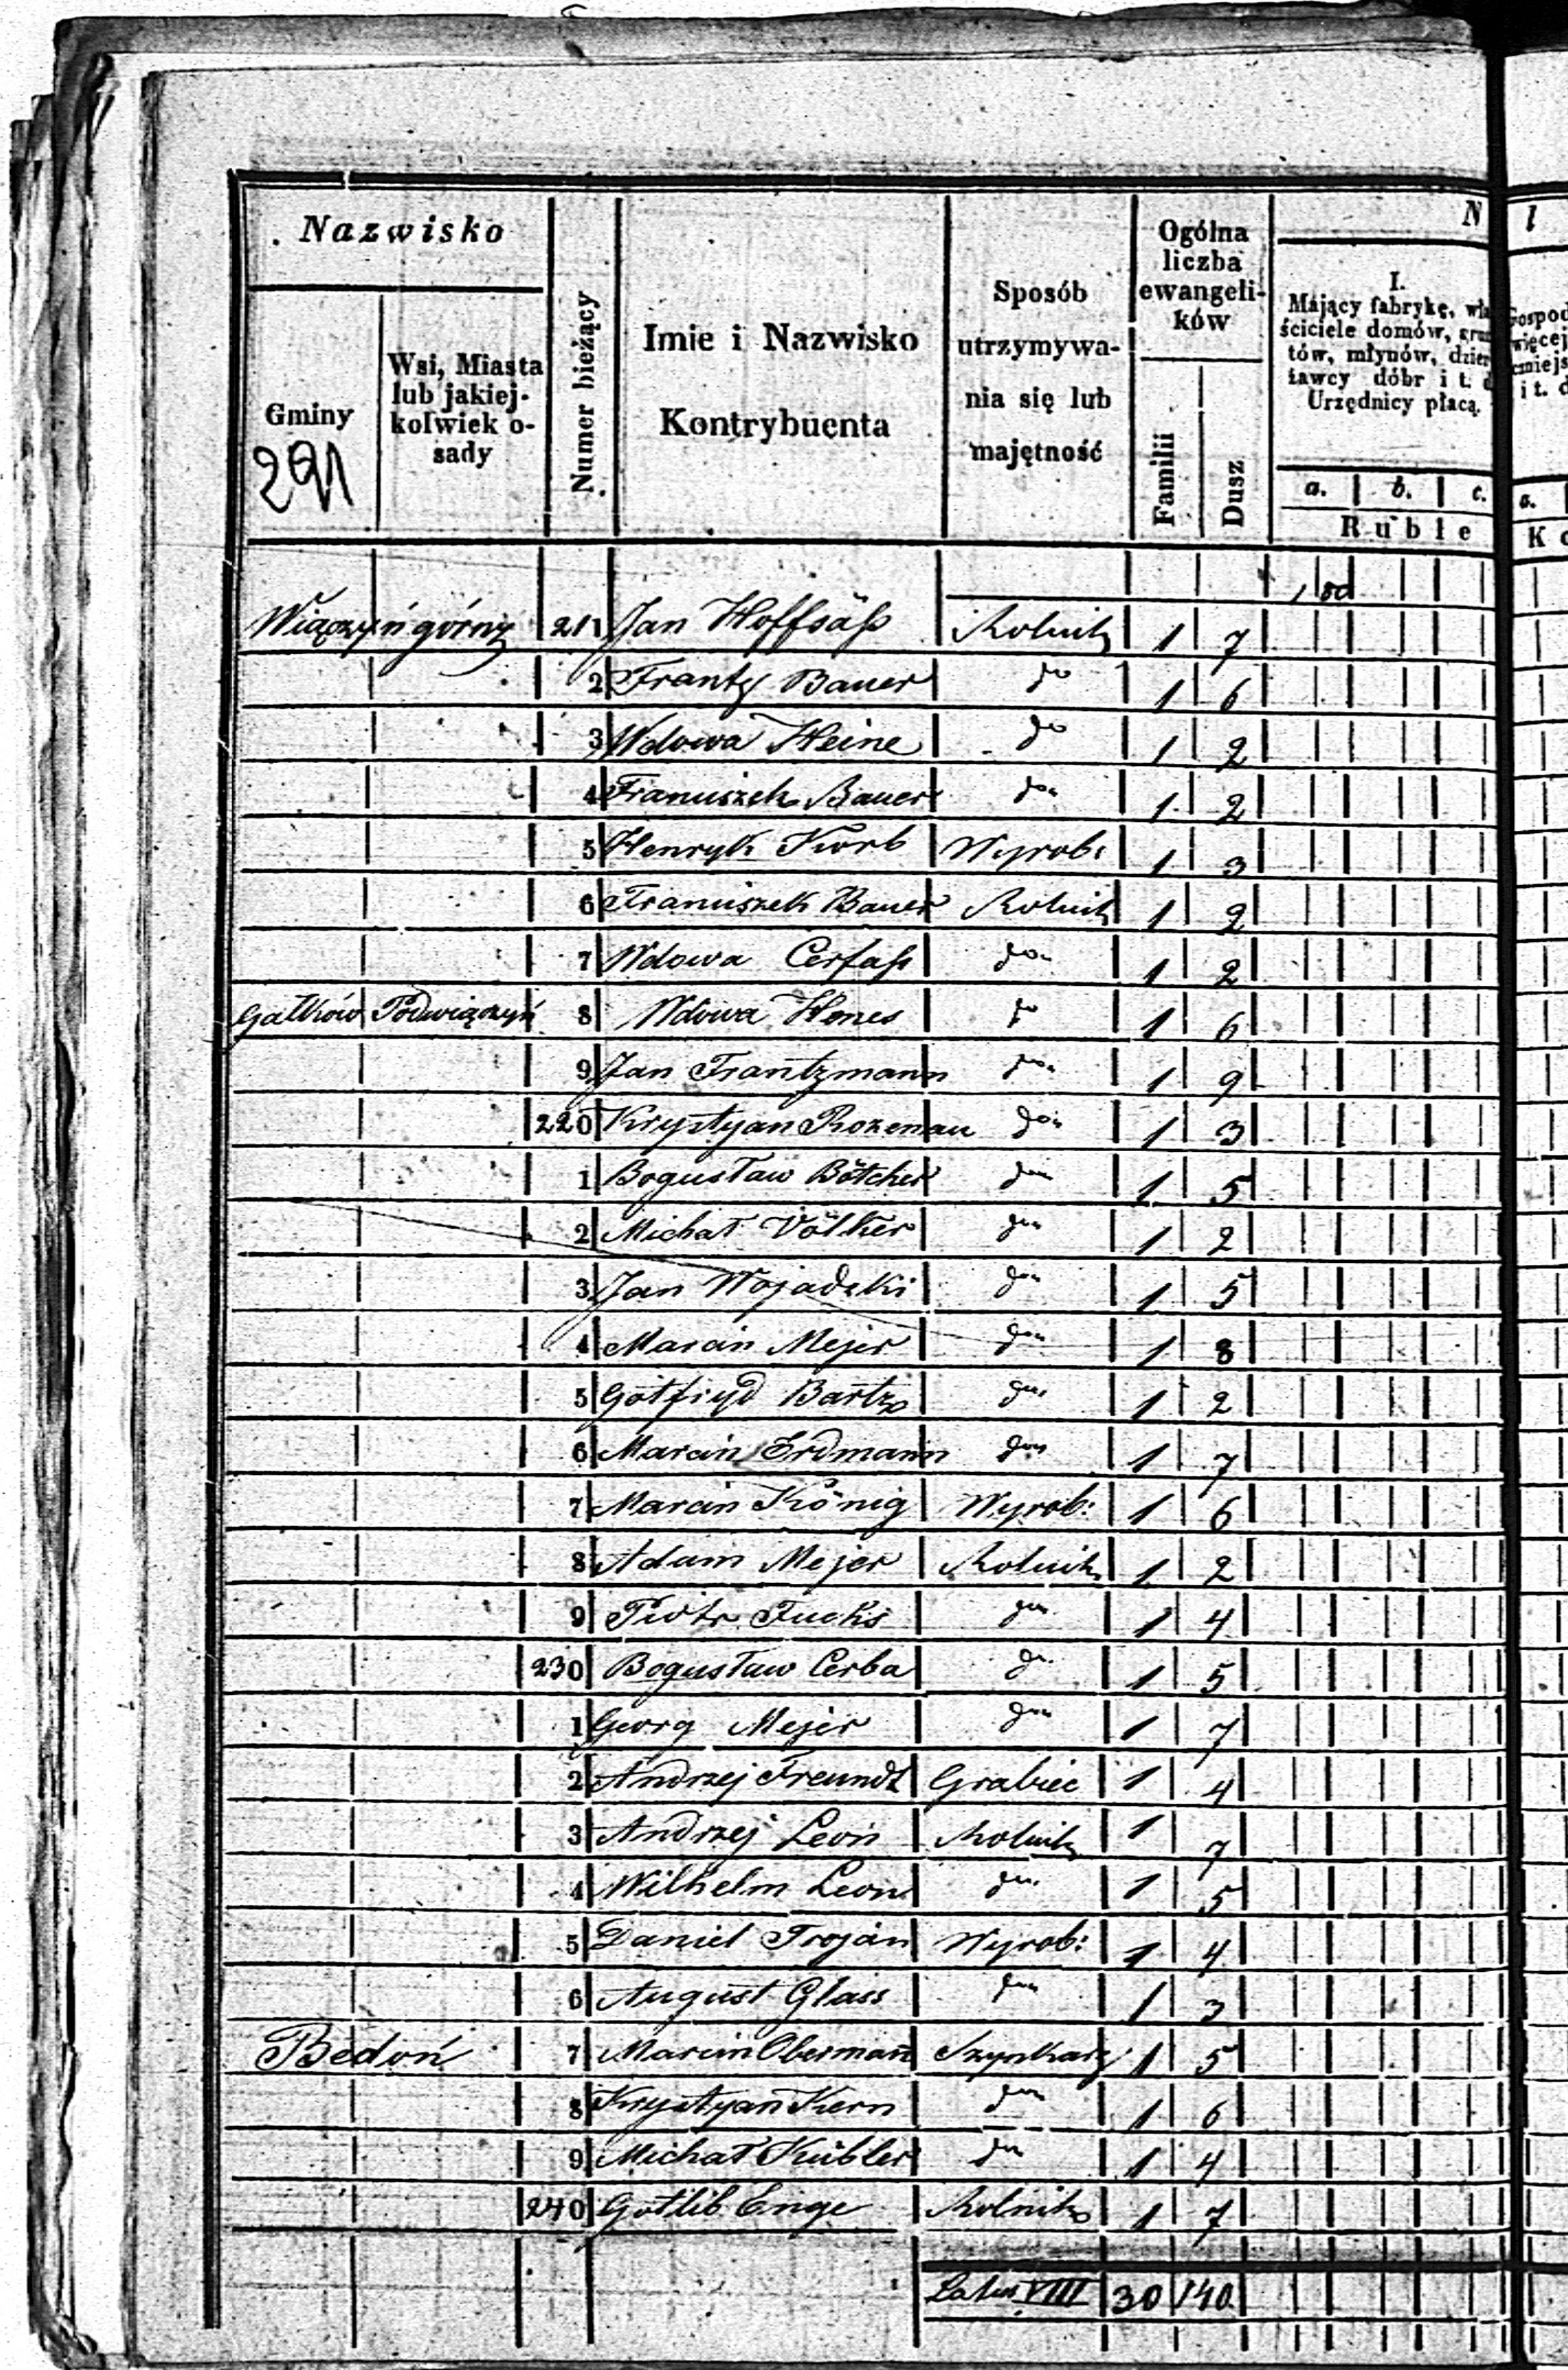 Nazwisko
Gminy
291
Wsi, Miasta
lub jakiej-
kolwiek o-
sady
Numer bieżący
Imie i Nazwisko
Kontrybuenta
Sposób
utrzymywa-
nia się lub
majętność
Ogólna
liczba
ewangeli-
ków
Familii
Dusz
N
I.
Mający fabrykę, wła
ściciele domów, grun
tów, młynów, dzier
żawcy dóbr i t. d
Urzędnicy płacą.
a. b. c.
Ruble
l
Gospod
więcej
cmiejs
i t. d
a.
K
1 80
Wiączyń górny 211 Jan Hoffsäß Rolnik 1 7
2 Frantz Bauer do 1 6
3 Wdowa Heine do 1 2
4 Franciszek Bauer do 1 2
5 Henryk Korb Wyrob: 1 3
6 Franciszek Bauer Rolnik 1 2
7 Wdowa Cerfaß do 1 2
Gałków Podwiączyń 8 Wdowa Henes do 1 6
9 Jan Frantzmann do 1 9
220 Krystyan Rozenau do 1 3
1 Bogusław Bötcher do 1 5
2 Michał Völker do 1 2
3 Jan Wojadzki do 1 5
4 Marcin Mejer do 1 8
5 Gotfryd Bartz do 1 2
6 Marcin Erdmann do 1 7
7 Marcin König Wyrob: 1 6
8 Adam Mejer Rolnik 1 2
9 Piotr Fucks do 1 4
230 Bogusław Cerba do 1 5
1 Georg Mejer do 1 7
2 Andrzej Freundt Grabiec 1 4
3 Andrzej Leon Rolnik 1 7
4 Wilhelm Leon do 1 5
5 Daniel Trojan Wyrob: 1 4
6 August Glass do 1 3
Bedoń 7 Marcin Obermann Szynkarz 1 5
8 Krystyan Kern do 1 6
9 Michał Kübler do 1 4
240 Gotlib Enge Rolnik 1 7
Latus VIII 30 140